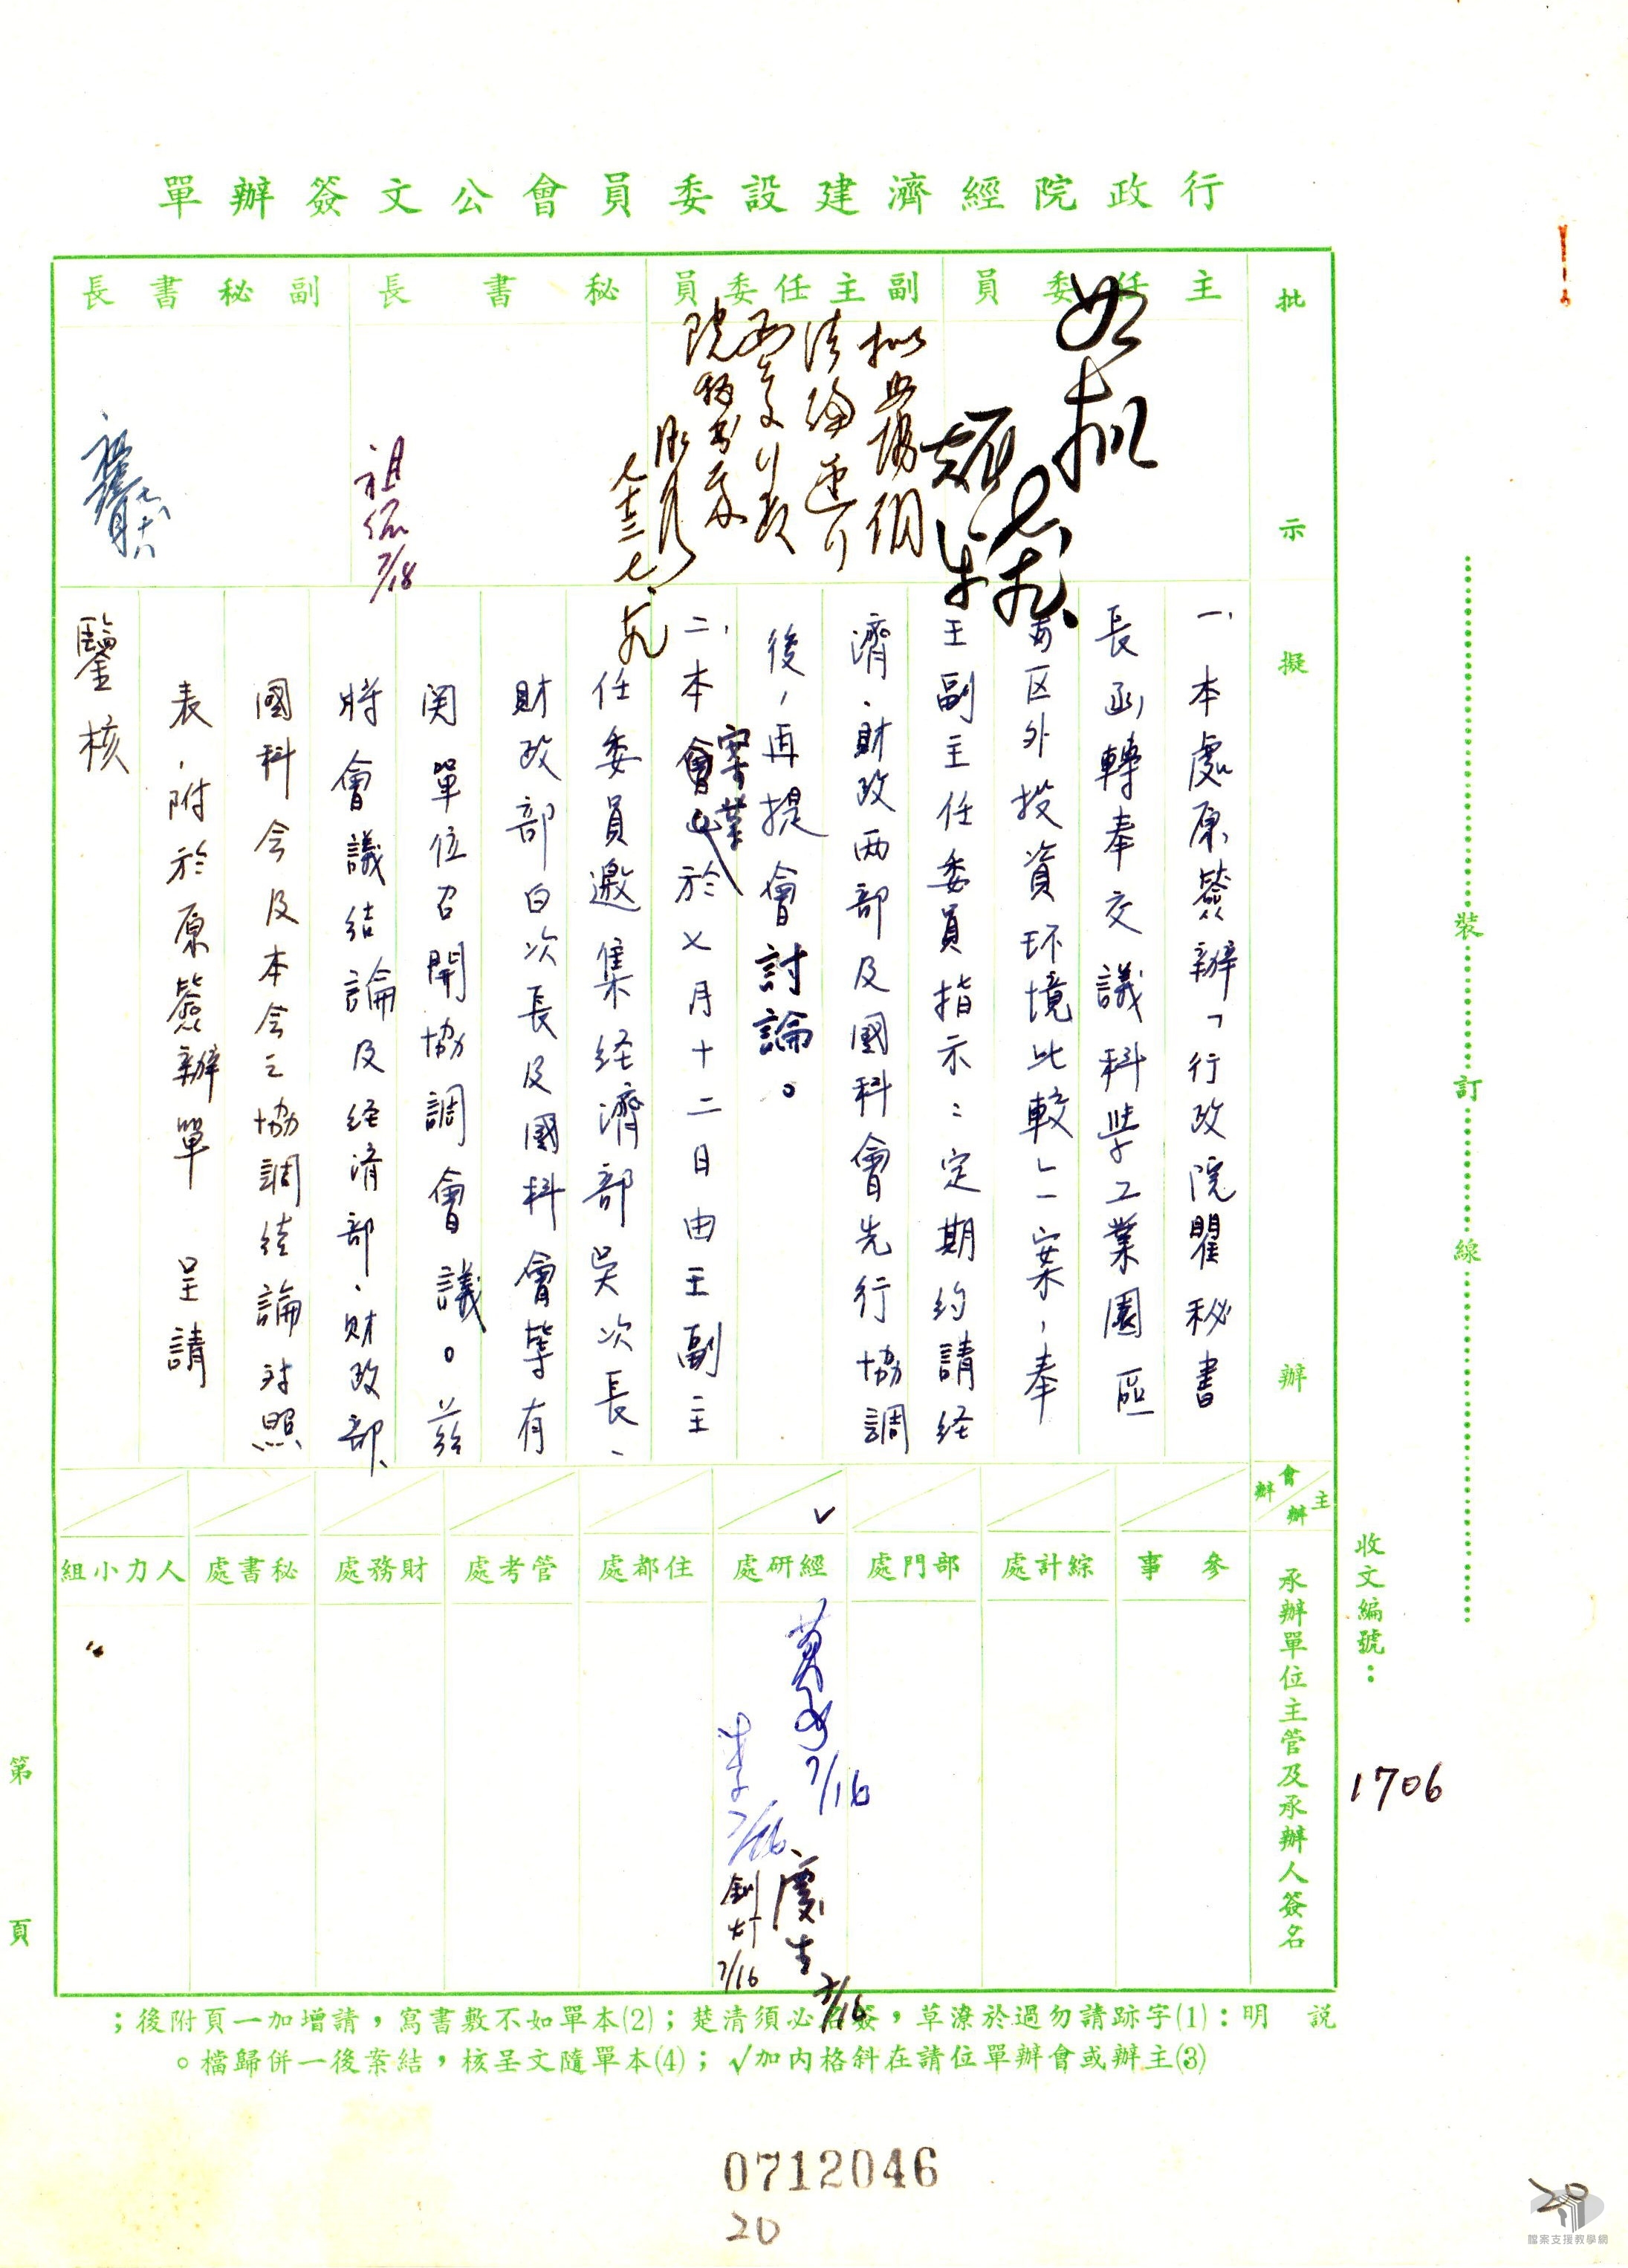 行政院經濟建設委員會公文簽辦單
批示
主任委員
副主任委員
秘書長
副秘書長
如擬
擬照協調
結論
院秘書處
七十三、七、九
祖佑
7/18
擬辦
一、本處原簽辦「行政院瞿秘書
長函轉奉交議科學工業園區
與区外投資环境比較」一案，奉
王副主任委員指示：定期約請経
濟、財政两部及國科會先行協調
後，再提會討論。
二、本案業於七月十二日由王副主
任委員邀集経濟部吳次長、
財政部白次長及國科會等有
関單位召開協調會議。茲
將會議結論及経済部、財政部、
國科会及本会之協調結論对照
表，附於原簽辦單 呈請
鑒核
主辦
會辦
承辦單位主管及承辦人簽名
參事
綜計處
部門處
經研處
住都處
管考處
財務處
秘書處
人力小組
✓
7/16
李
7/16
慶生
7/16
釗灯
7/16
說明：(1)字跡請勿過於潦草，簽名必須清楚；(2)本單如不敷書寫，請增加一頁附後；
(3)主辦或會辦單位請在斜格內加✓；(4)本單隨文呈核，結案後一併歸檔。
裝訂線
收文編號：
1706
第頁
0712046
20
20
檔案支援教學網